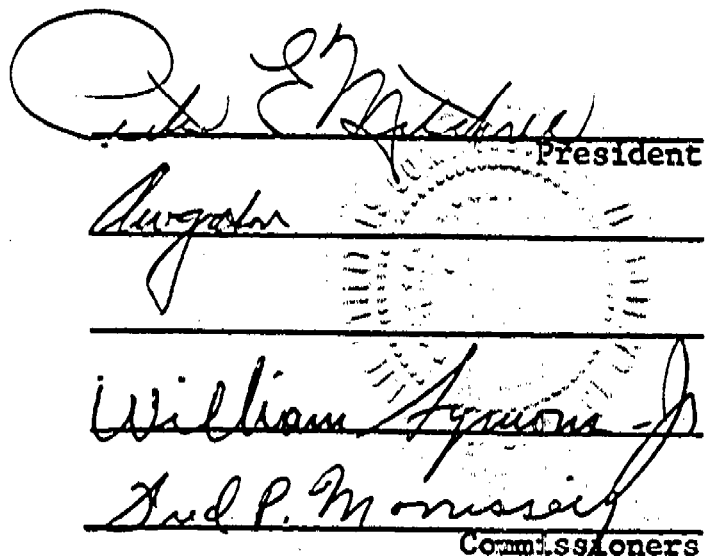 Peter E. Mitchell
President
William Symons Jr
Fred P. Morrissey
Commissioners